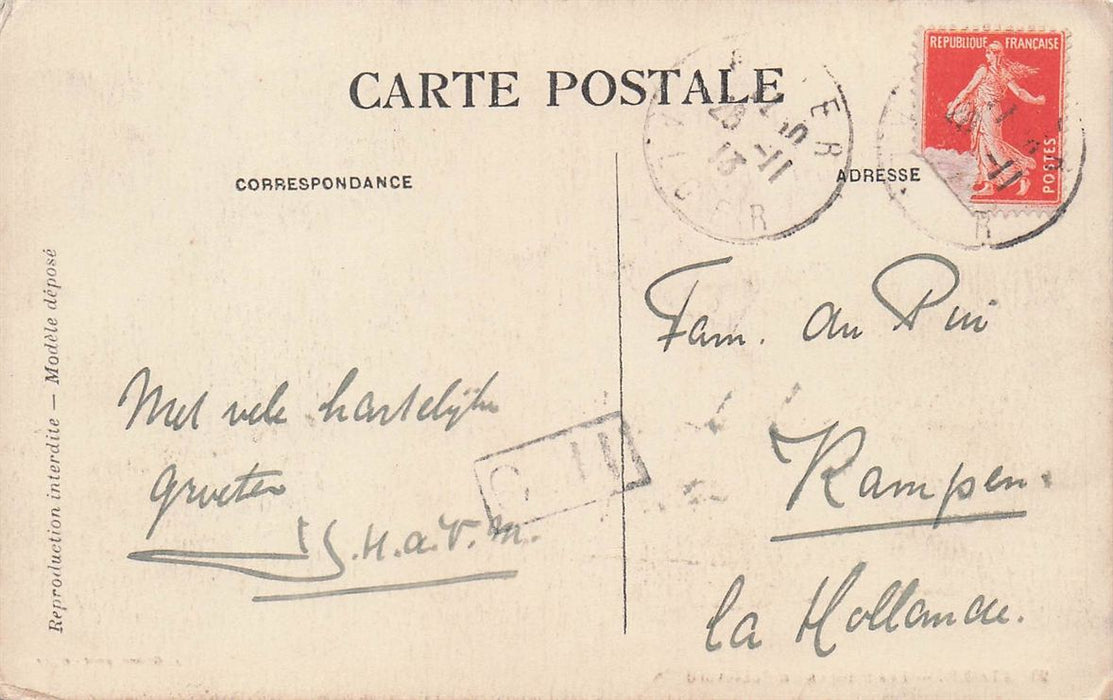 CARTE POSTALE
CORRESPONDANCE
ADRESSE
REPUBLIQUE FRANÇAISE
POSTES
ALGER
Reproduction interdite — Modèle déposé
Met vele hartelijke
groeten
Fam. du Pui
Kampen.
la Hollande.